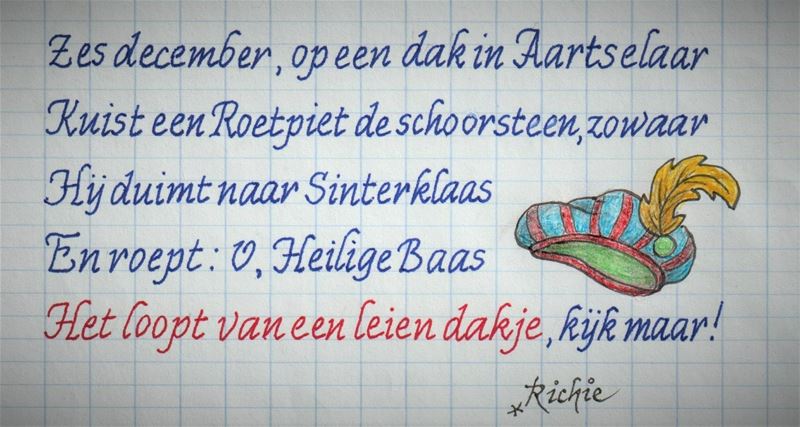 Zes december, op een dak in Aartselaar
Kuist een Roetpiet de schoorsteen, zowaar
Hij duimt naar Sinterklaas
En roept: O, Heilige Baas
Het loopt van een leien dakje, kijk maar!
*Richie